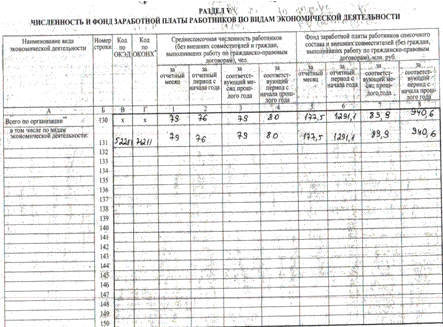 РАЗДЕЛ V
ЧИСЛЕННОСТЬ И ФОНД ЗАРАБОТНОЙ ПЛАТЫ РАБОТНИКОВ ПО ВИДАМ ЭКОНОМИЧЕСКОЙ ДЕЯТЕЛЬНОСТИ
Наименование вида экономической деятельности
Номер строки
Код по ОКЭД
Код по ОКОНХ*
Среднесписочная численность работников (без внешних совместителей и граждан, выполнявших работу по гражданско-правовым договорам), чел.
Фонд заработной платы работников списочного состава и внешних совместителей (без граждан, выполнявших работу по гражданско-правовым договорам), млн. руб.
за отчетный месяц
за отчетный период с начала года
за соответствующий месяц прошлого года
за соответствующий период с начала прошлого года
за отчетный месяц
за отчетный период с начала года
за соответствующий месяц прошлого года
за соответствующий период с начала прошлого года
А Б В Г 1 2 3 4 5 6 7 8
Всего по организации** 130 х х 79 76 79 80 177,5 1291,1 83,9 940,6
в том числе по видам экономической деятельности:
131 52281 79 76 79 80 177,5 1291,1 83,9 940,6
132
133
134
135
136
137
138
139
140
141
142
143
144
145
146
147
148
149
150